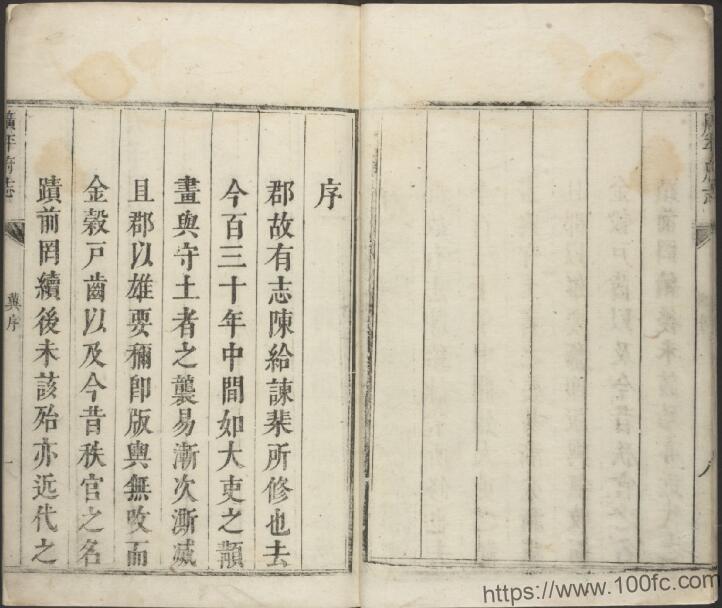 序
郡故有志陳給諫棐所修也去
今百三十年中間如大吏之顓
畫與守土者之襲易漸次澌滅
且郡以雄要稱卽版輿無改而
金穀戶齒以及今昔秩官之名
蹟前罔續後未該殆亦近代之
廣平府志
冀序
一
廣平府志
八
https://www.100fc.com